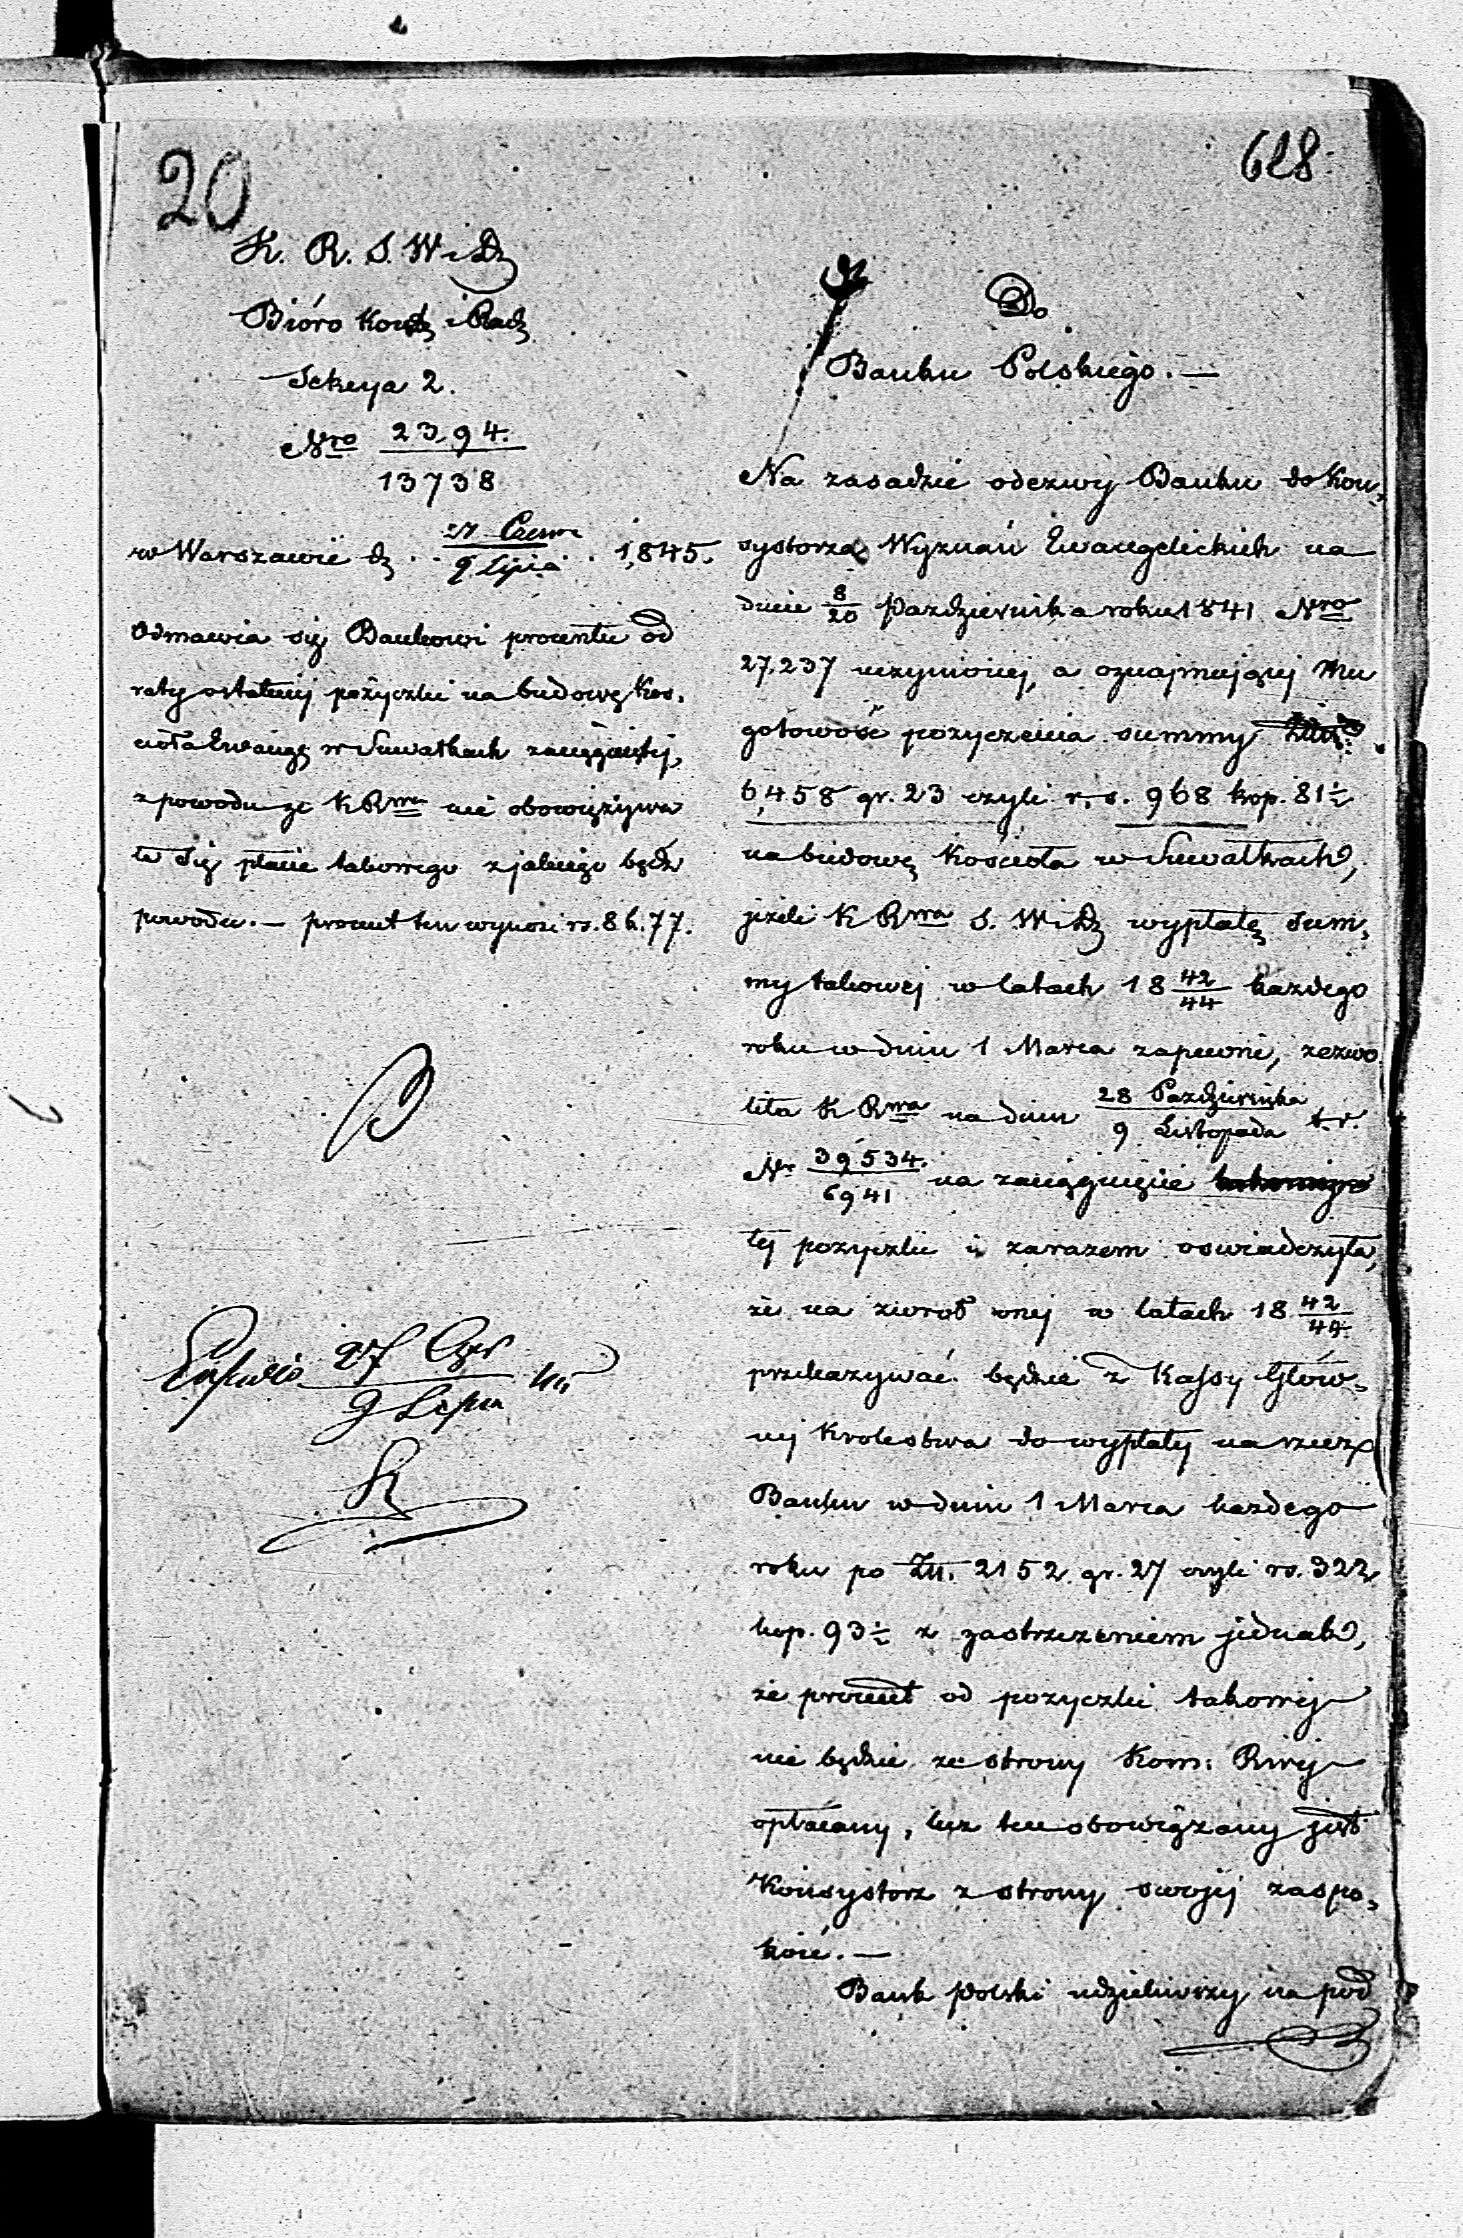 20
628
K. R. S. W i D
Bióro Kontr i Rach
Sekcya 2.
Nro 23,94.
13738
w Warszawie d. 27 Czerw / 9 Lipca 1,845.
Odmawia się Bankowi procentu od
raty ostatniej pożyczki na budowę Koś,
cioła Ewang w Suwałkach zaciągniętej,
z powodu że K Rwa nie obowiązywa
ła się płacić takowego z jakiego bądź
powodu. — procent ten wynosi rs. 8 k. 77.
27 Czer
9 Lipca
Do
Banku Polskiego. —
Na zasadzie odezwy Banku do Kon,
systorza Wyznań Ewangelickich na
dniu 8/20 Października roku 1841 Nro
27,237 uczynionej, a oznajmującej Mu
gotowość pożyczenia summy
6,458 gr. 23 czyli r. s. 968 kop. 81½
na budowę Kościoła w Suwałkach,
jeżeli K Rwa S. W i D wypłatę Sum,
my takowej w latach 18 42/44 każdego
roku w dniu 1 Marca zapewni, zezwo
liła K Rwa na dniu 28 Października / 9 Listopada t. r.
Nr 39534. / 6941 na zaciągnięcie
tej pożyczki i zarazem oswiadczyła,
że na zwrot onej w latach 18 42/44
przekazywać będzie z Kassy Głów,
nej Krolestwa do wypłaty na rzecz
Banku w dniu 1 Marca każdego
roku po Złł. 2152 gr. 27 czyli rs. 322
kop. 93½ z zastrzeżeniem jednak,
że procent od pożyczki takowej
nie będzie ze strony Kom: Rwej
opłacany, lecz ten obowiązany jest
Konsystorz z strony swojej zaspo,
koić. —
Bank Polski udzieliwszy na pod